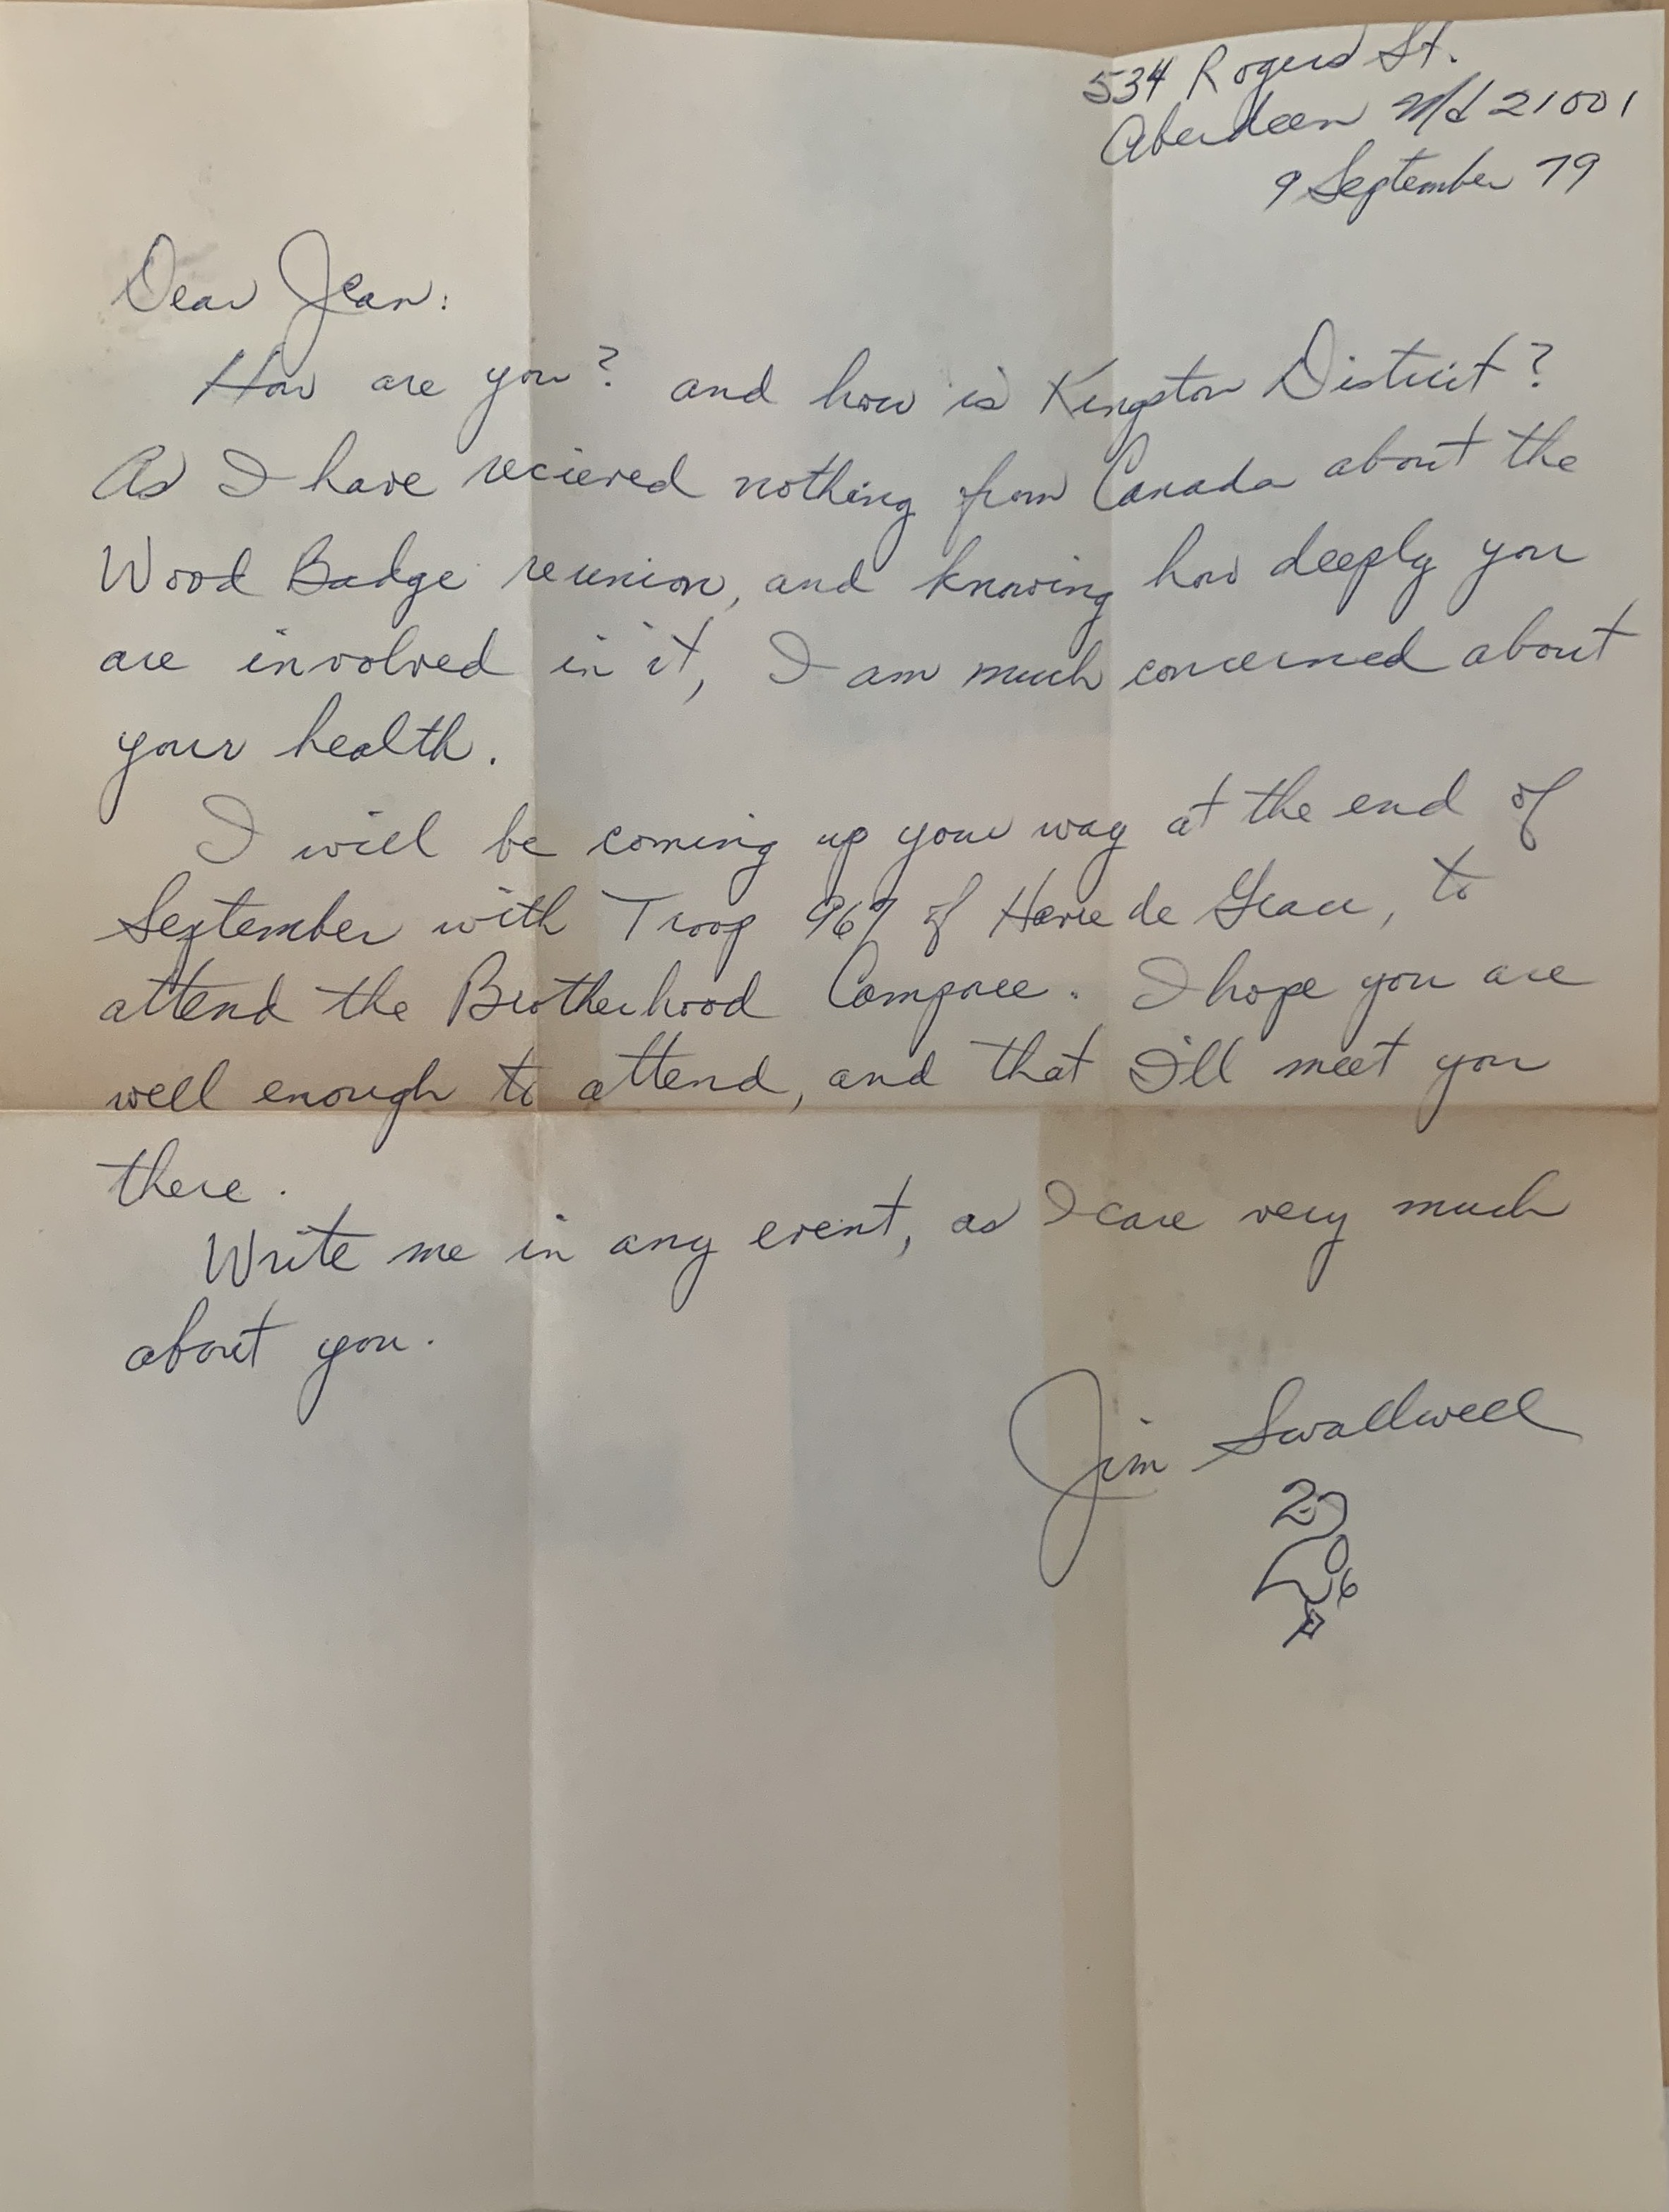 534 Rogers St.
Aberdeen Md 21001
9 September 79
Dear Jean:
How are you? and how is Kingston District?
As I have recieved nothing from Canada about the
Wood Badge reunion, and knowing how deeply you
are involved in it, I am much concerned about
your health.
I will be coming up your way at the end of
September with Troop 967 of Havre de Grace, to
attend the Brotherhood Camporee. I hope you are
well enough to attend, and that I'll meet you
there.
Write me in any event, as I care very much
about you.
Jim Swallwell